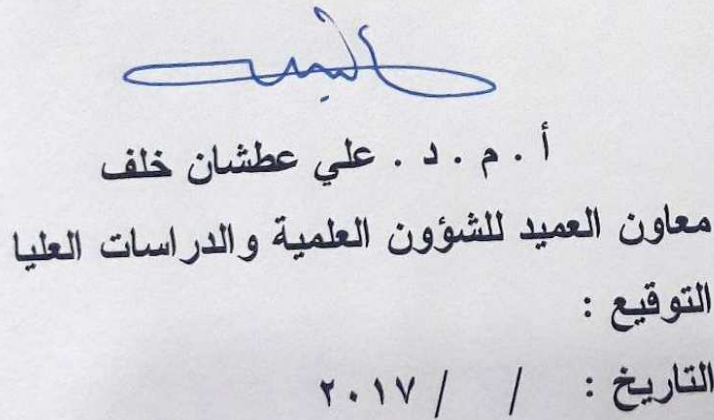 أ . م . د . علي عطشان خلف
معاون العميد للشؤون العلمية والدراسات العليا
التوقيع :
التاريخ : / / ٢٠١٧